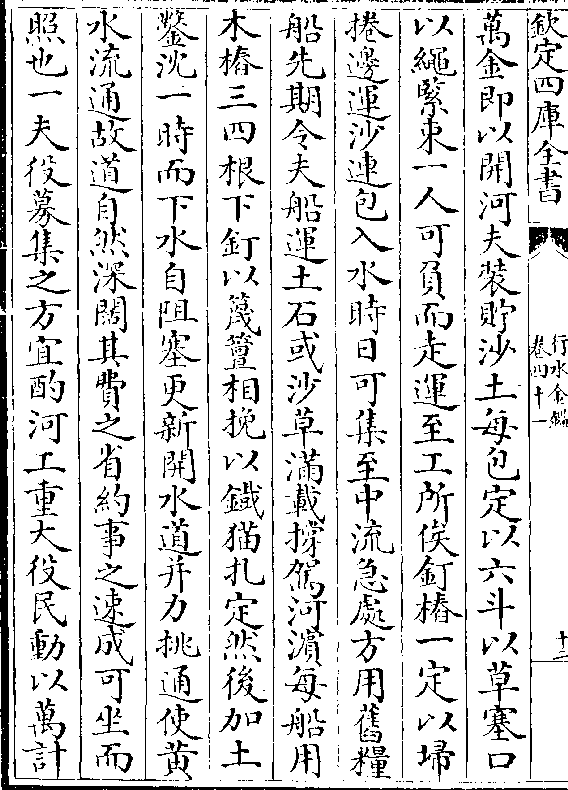 欽定四庫全書
行水金鑑
卷四十一
十二
萬金即以開河夫裝貯沙土每包定以六斗以草塞口
以繩緊束一人可負而走運至工所俟釘樁一定以埽
捲邊運沙連包入水時日可集至中流急處方用舊糧
船先期令夫船運土石或沙草滿載撐駕河濵每船用
木樁三四根下釘以篾簟相挽以鐵猫扎定然後加土
鑿沈一時而下水自阻塞更新開水道并力挑通使黄
水流通故道自然深闊其費之省約事之速成可坐而
照也一夫役募集之方宜酌河工重大役民動以萬計